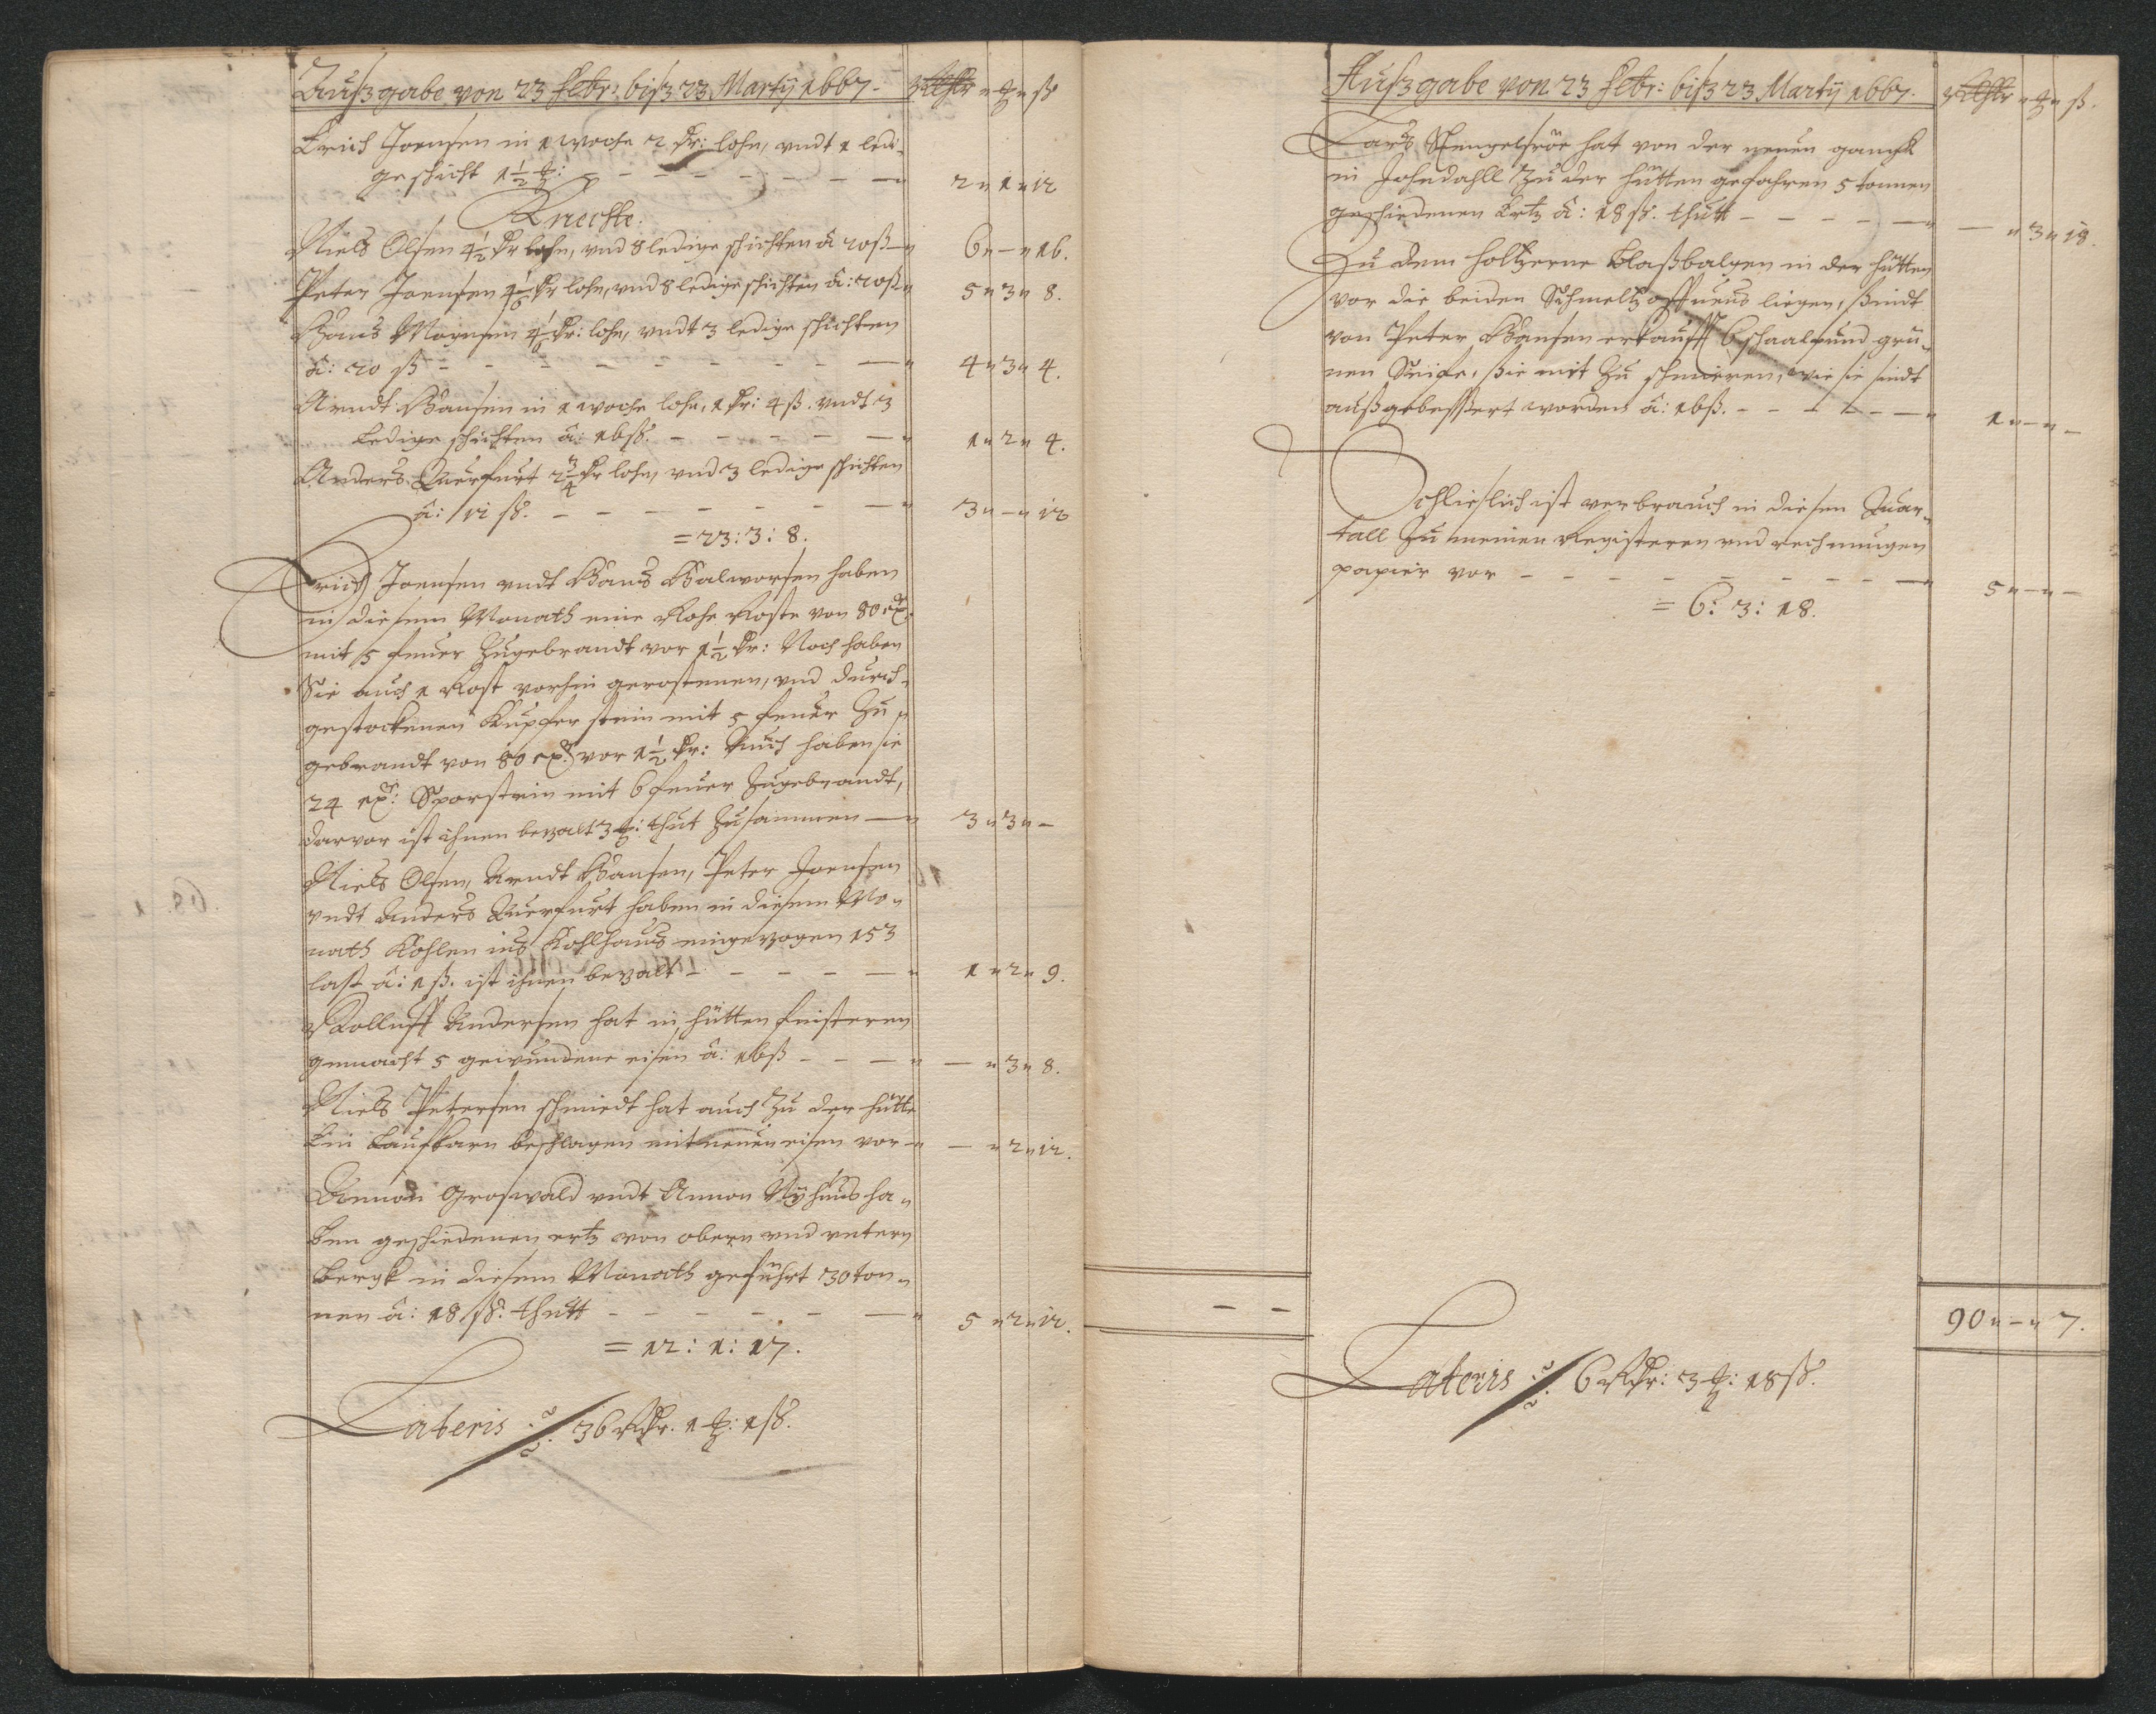 Außgabe von 23 Febr: biß 23 Martÿ 1667. Rthlr " ℔ " ß
Erich Joensen in 1 woche 2 Dr: lohn, vndt 1 ledi-
ge schicht 1½ ℔: - - - - - - - " 2 " 1 " 12
Knechte.
Niels Olsen 4½ Dr lohn, vnd 8 ledige schichten â 20 ß — " 6 " — " 16.
Peter Joensen 4⅙ Dr lohn, vnd 8 ledige schichten â: 20 ß — " 5 " 3 " 8.
Hans Mogensen 4⅙ Dr: lohn, vndt 3 ledige schichten
â: 20 ß - - - - - - - — " 4 " 3 " 4.
Arndt Hansen in 1 woche lohn, 1 Dr: 4 ß. vndt 3
ledige schichten â: 16 ß. - - - - — " 1 " 2 " 4.
Anders Querfurt 2¾ Dr lohn, vnd 3 ledige schichten
â: 12 ß. - - - - - - — " 3 " — " 12
= 23: 3: 8.
Erich Joensen vndt Hans Halworsen haben
in diesem Monath eine Rohe Roste von 80
mit 5 feuer Zugebrandt vor 1½ Dr: Noch haben
Sie auch 1 Rost vorhin gerostenen, vnd durch-
gestochenen Kupferstein mit 5 feuer Zu-
gebrandt von 80 vor 1½ Dr: Auch haben sie
24 Sporstein mit 6 feuer Zugebrandt,
darvor ist ihnen bezalt 3 ℔: thut Zusammen — " 3 " 3 " —
Niels Olsen, Arndt Hansen, Peter Joensen
vndt Anders Querfurt haben in diesem Mo-
nath Kohlen ins Kohlhaus eingezogen 153
last â: 1 ß. ist ihnen bezalt - - - - — " 1 " 2 " 9.
Rolluff Andersen hat in hütten
gemacht 5 gewundene eisen â: 16 ß - - — " — " 3 " 8.
Niels Petersen schmiedt hat auch Zu der hütte
Ein Laufkarn beschlagen mit neuen eisen vor — " — " 2 " 12.
Amon Groswald vndt Amon Nÿhuus ha-
ben geschiedenen ertz von obern vnd vntern
bergk in diesem Monath geführt 30 ton-
nen â: 18 ß. thutt - - - - - — " 5 " 2 " 12.
= 12: 1: 17.
Lateris 36 Rdr. 1 ℔: 1 ß.
Außgabe von 23 Febr: biß 23 Martÿ 1667. Rthlr " ℔ " ß.
Lars hat von der neuen gangk
in Johndahll Zu der hütten gefahren 5 tonnen
geschiedenen Ertz â: 18 ß. thutt - - - - — " — " 3 " 18.
Zu dem holtzerne Blaßbalgen in der hütten
vor die beiden Schmeltzoffnens liegen, sindt
von Peter Hansen erkaufft 6 schaalpund gru-
nen Seife, Sie mit Zu schmieren, wie sie sindt
außgebeßert worden â: 16 ß. - - - - - — " 1 " — " —
Schlieslich ist verbrauch in diesen Quar-
tall Zu meinen Registeren vnd rechnungen
papier vor - - - - - - - - — " 5 " — " —
= 6: 3: 18.
- - 90 " — " 7.
Lateris 6 Rdr: 3 ℔: 18 ß.